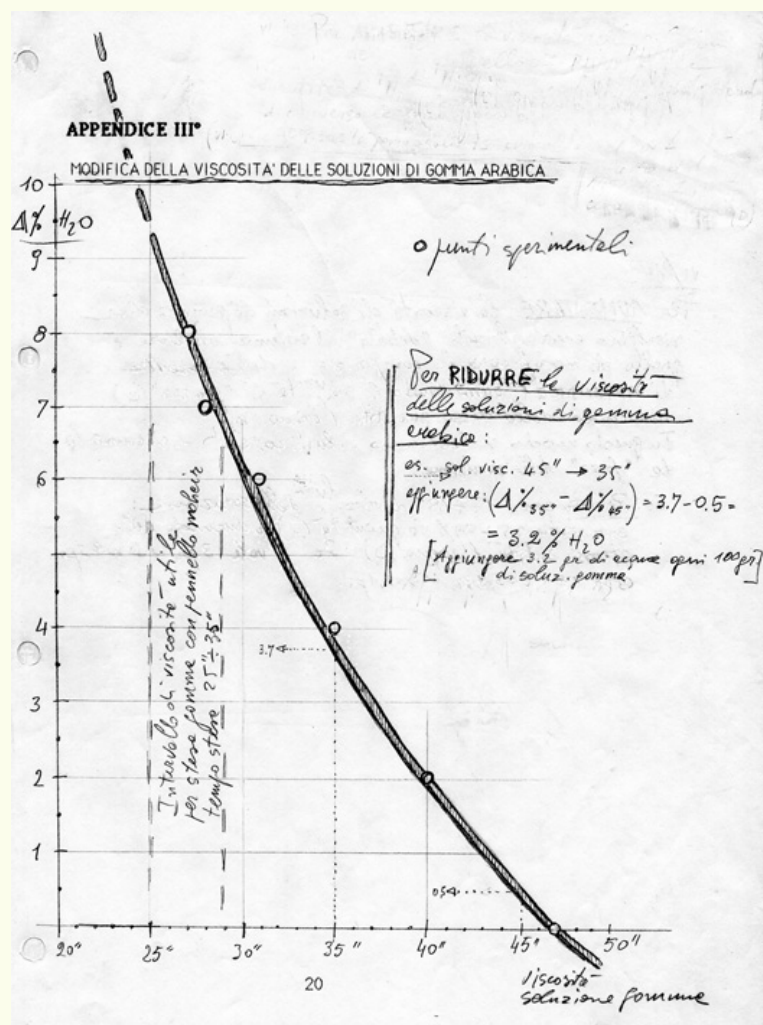 APPENDICE III°
MODIFICA DELLA VISCOSITA' DELLE SOLUZIONI DI GOMMA ARABICA
10
Δ% H₂O
9
8
7
6
4
3
2
1
o punti sperimentali
Per RIDURRE la viscosità
delle soluzioni di gomma
arabica:
es. sol. visc. 45" → 35"
aggiungere: (Δ%35" - Δ%45") = 3.7 - 0.5 =
= 3.2 % H₂O
[Aggiungere 3.2 gr di acqua ogni 100 gr]
di soluz. gomma
Intervallo di viscosità utile
per stesa gomma con pennello mohair
tempo stesa 25" ÷ 35"
3.7
0.5
20" 25" 30" 35" 40" 45" 50"
20
viscosità
soluzione gomma